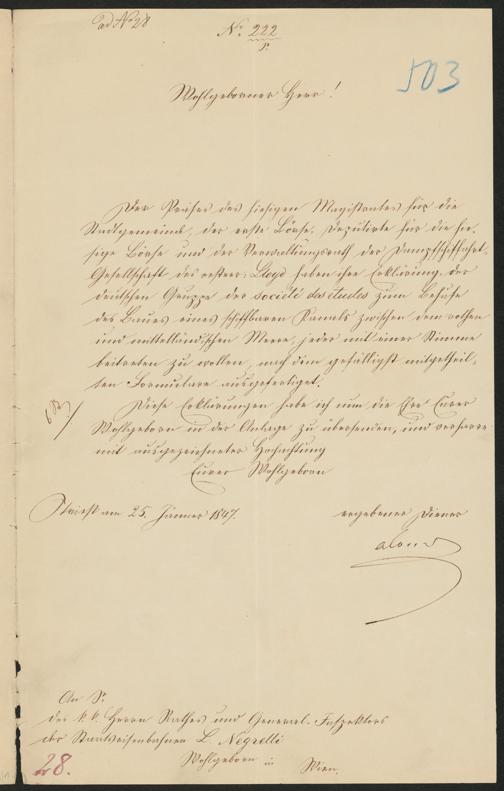 ad No 28
No 222
p.
503
Wohlgeborner Herr!
Der Präses des hiesigen Magistrates für die
Stadtgemeinde, der erste Börse-Deputirte für die hie-
sige Börse und der Verwaltungsrath der Dampfschiffahrt-
Gesellschaft des österr: Lloyd haben ihre Erklärung, der
deutschen Gruppe der société des études zum Behufe
des Baues eines schiffbaren Kanals zwischen dem rothen
und mittelländischen Meere, jeder mit einer Stimme
beitreten zu wollen, nach dem gefälligst mitgetheil-
ten Formulare ausgefertiget.
Diese Erklärungen habe ich nun die Ehre Euer
Wohlgeborn in der Anlage zu übersenden, und verharre
mit ausgezeichneter Hochachtung
Euer Wohlgeborn
Triest am 25. Jänner 1847.
ergebener Diener
An Sr.
des k.k. Herrn Rathes und General-Inspektors
der Staatseisenbahnen L. Negrelli
Wohlgeborn in Wien.
28.